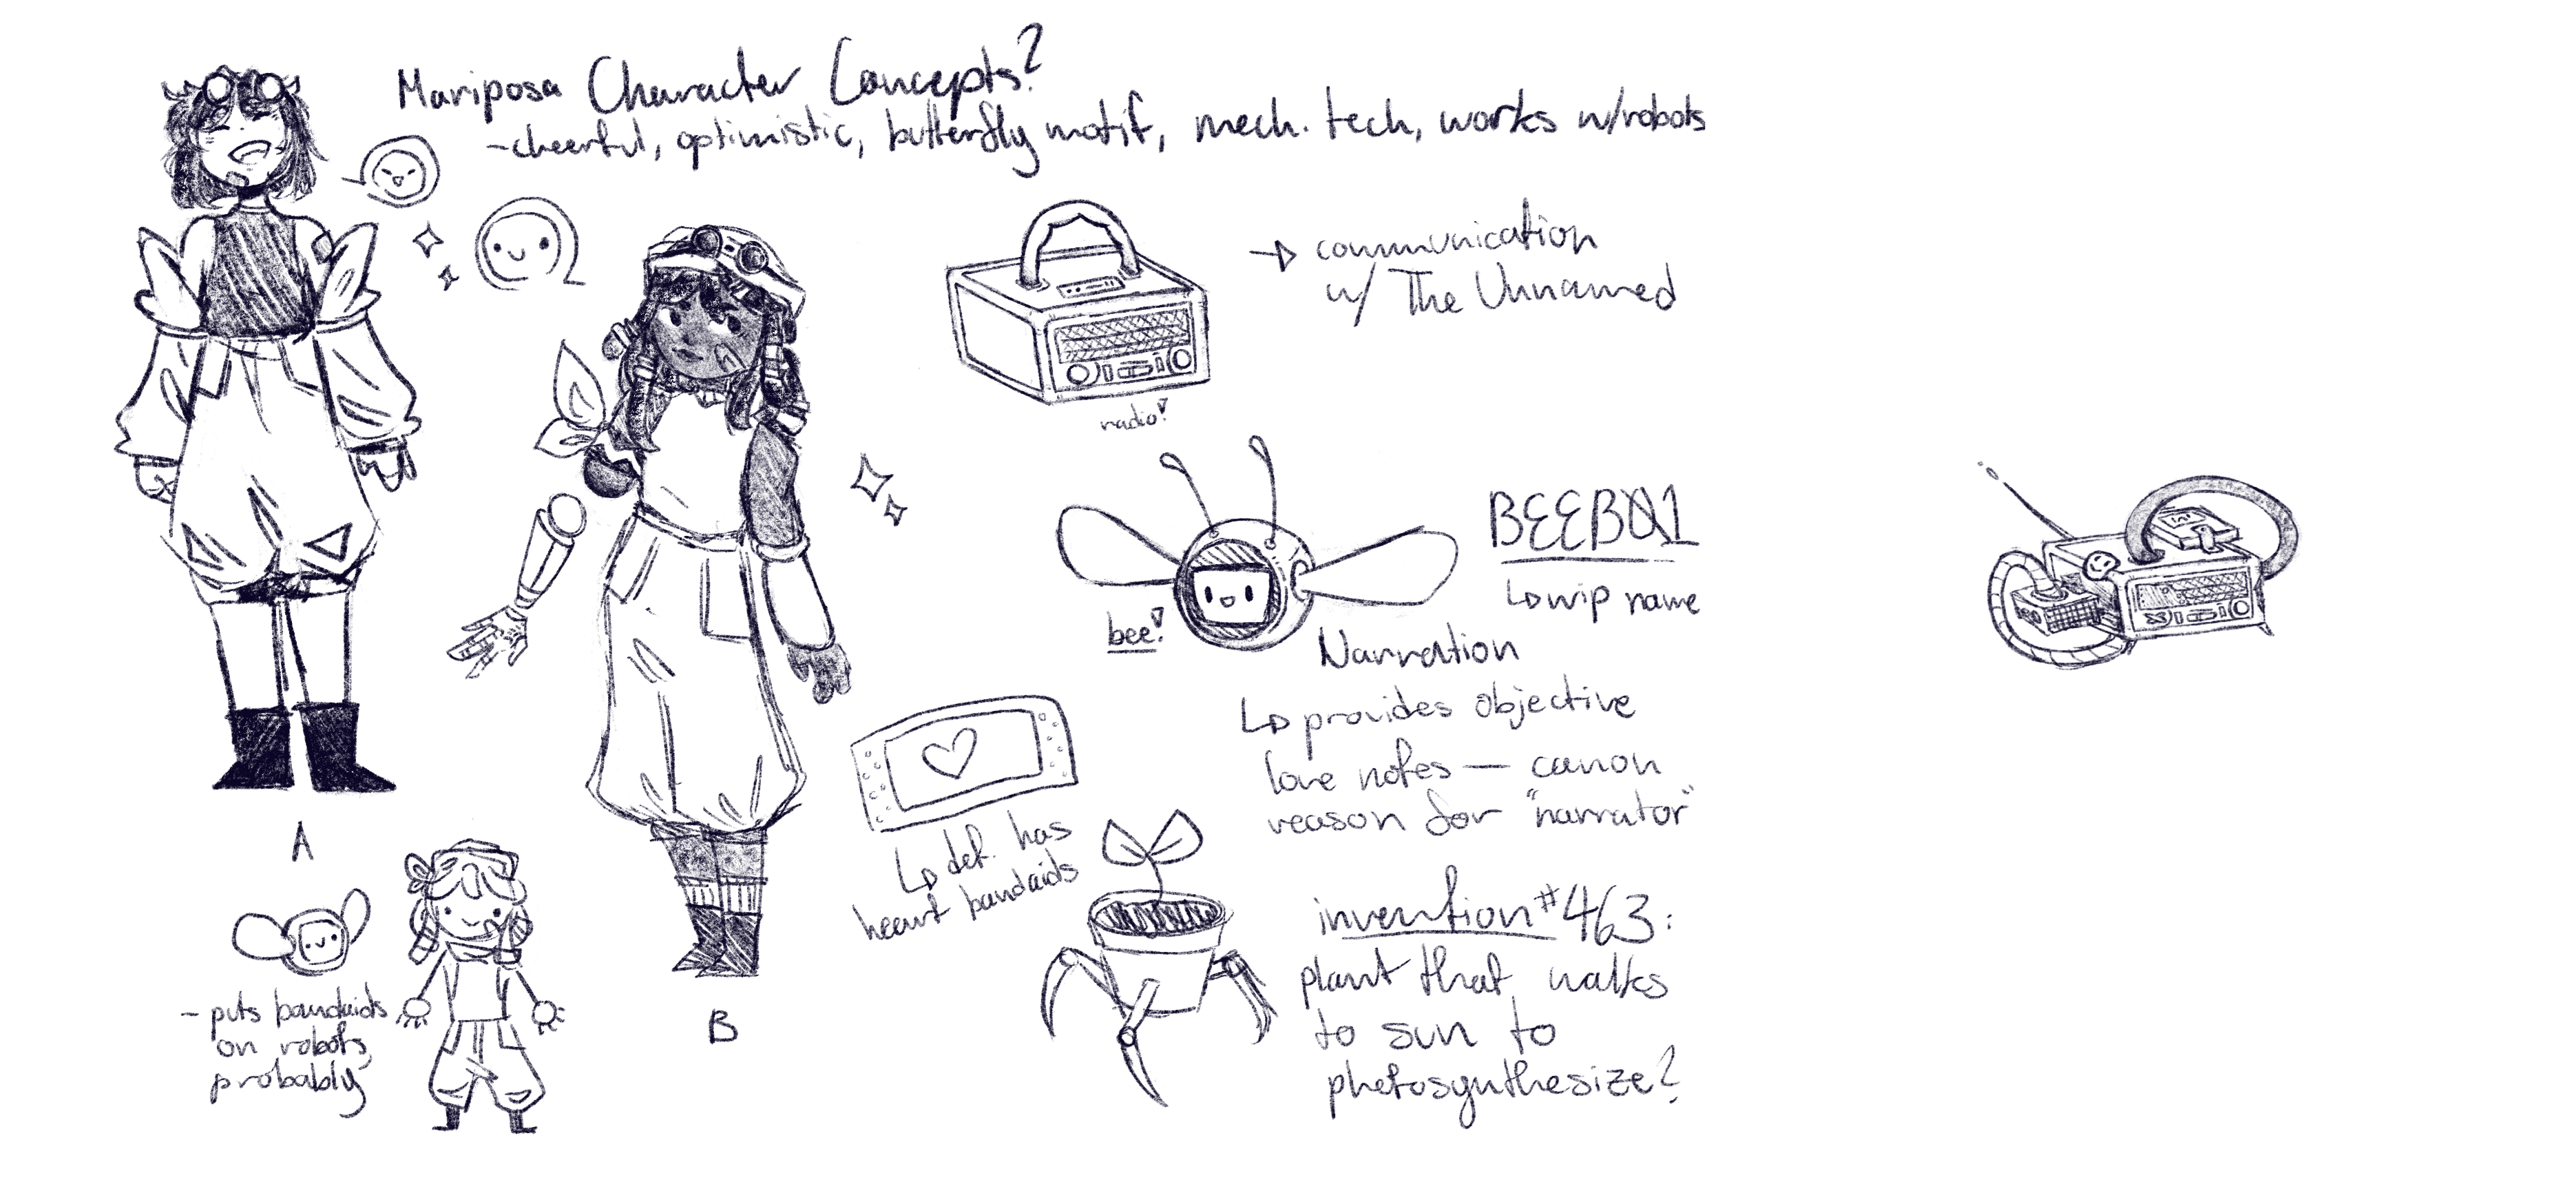 Mariposa Character Concepts?
-cheerful, optimistic, butterfly motif, mech. tech, works w/robots
→ communication
w/ The Unnamed
radio!
BEEB01
↳ wip name
bee!
Narration
↳ provides objective
lore notes — canon
reason for "narrator"
↳ def. has
heart bandaids
A
B
- puts bandaids
on robots,
probably
invention #463:
plant that walks
to sun to
photosynthesize?